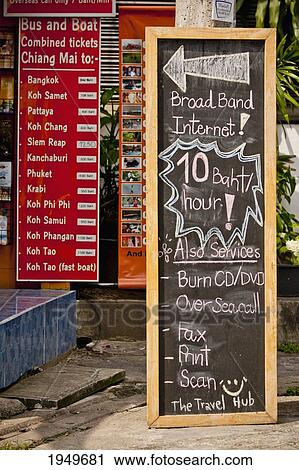 Overseas can only / Baht/min
Bus and Boat
Combined tickets
Chiang Mai to:-
Bangkok
Koh Samet
Pattaya
Koh Chang
Siem Reap
Kanchaburi
Phuket
Krabi
Koh Phi Phi
Koh Samui
Koh Phangan
Koh Tao
Koh Tao (fast boat)
Broad Band
Internet!
10 Baht/
hour!
Also Services
- Burn CD/DVD
- Over sea call
- Fax
- Print
- Scan
The Travel Hub
Fotosearch
1949681 www.fotosearch.com